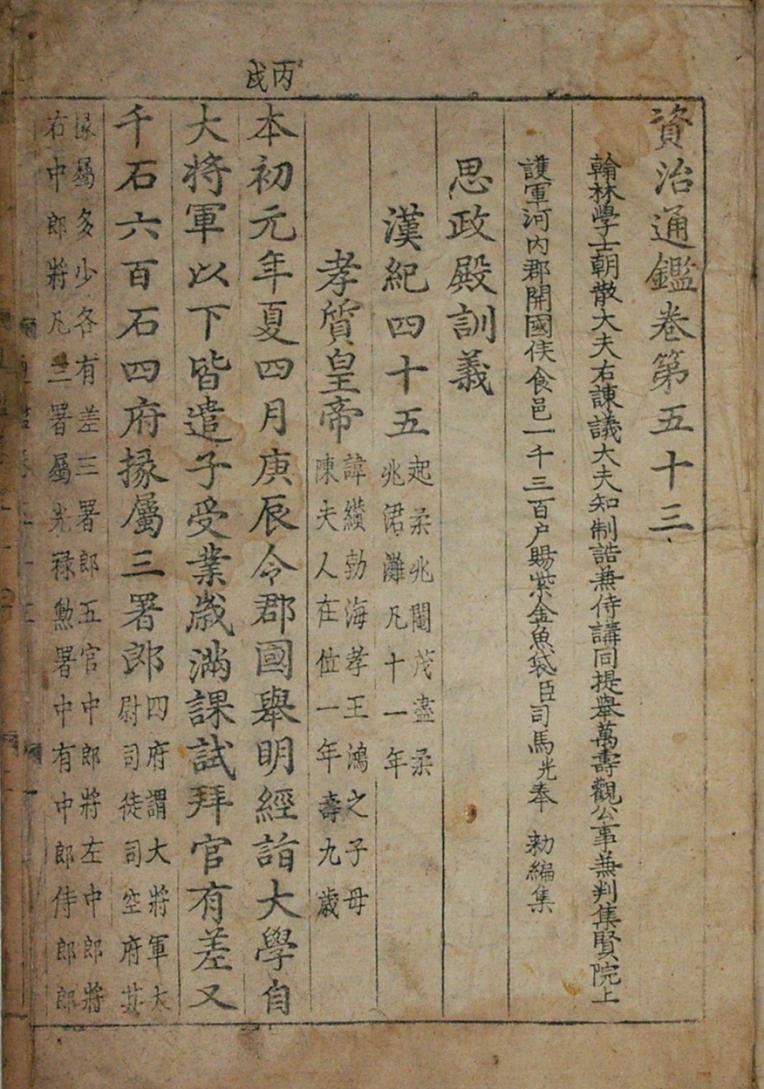 丙戌
資治通鑑卷第五十三
翰林學士朝散大夫右諫議大夫知制誥兼侍講同提舉萬壽觀公事兼判集賢院上
護軍河內郡開國侯食邑一千三百户賜紫金魚袋臣司馬光奉 勅編集
思政殿訓義
漢紀四十五起柔兆閹茂盡柔
兆涒灘凡十一年
孝質皇帝諱纘勃海孝王鴻之子母
陳夫人在位一年壽九歲
本初元年夏四月庚辰令郡國舉明經詣大學自
大將軍以下皆遣子受業歲滿課試拜官有差又
千石六百石四府掾屬三署郎四府謂大將軍太
尉司徒司空府其
掾屬多少各有差三署郎五官中郎將左中郎將
右中郎將凡三署屬光祿勲署中有中郎侍郎郎